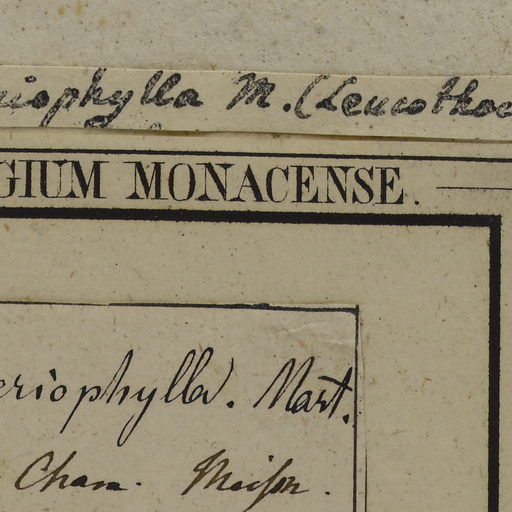 riophylla M. (Leucothoe
GIUM MONACENSE.
eriophylla. Mart.
Cham. Meissn.